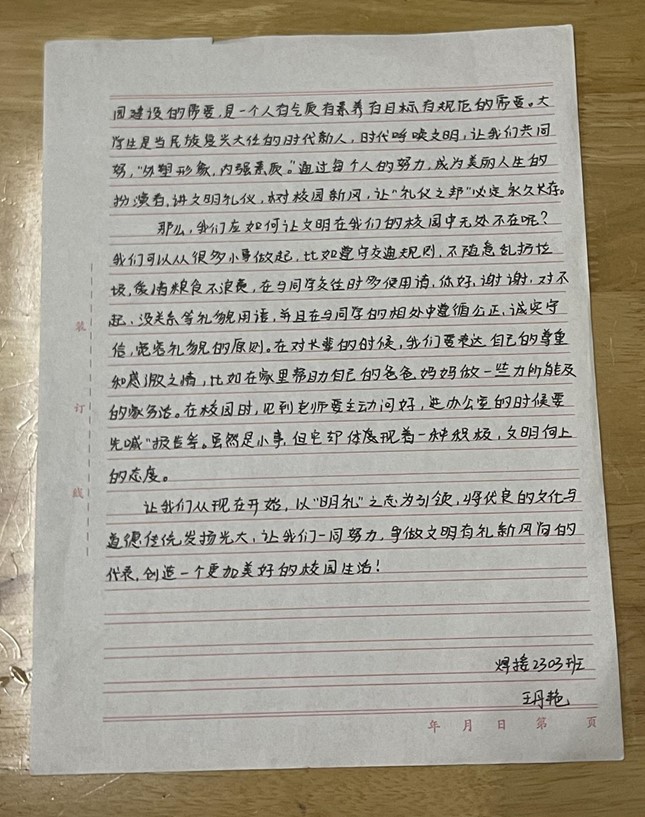 园建设的需要,是一个人有气质有素养有目标有规范的需要。大
学生是当民族复兴大任的时代新人,时代呼唤文明,让我们共同
努,“外塑形象,内强素质。”通过每个人的努力,成为美丽人生的
扮演者,讲文明礼仪,树校园新风,让“礼仪之邦”必定永久长存。
那么,我们应如何让文明在我们的校园中无处不在呢?
我们可以从很多小事做起,比如遵守交通规则,不随意乱扔垃
圾,爱惜粮食不浪费,在与同学交往时多使用请,你好,谢谢,对不
起,没关系等礼貌用语,并且在与同学的相处中遵循公正,诚实守
信,宽容礼貌的原则。在对长辈的时候,我们要表达自己的尊重
和感激之情,比如在家里帮助自己的爸爸妈妈做一些力所能及
的家务活。在校园时,见到老师要主动问好,进办公室的时候要
先喊“报告等。虽然是小事,但它却体现着一种积极,文明向上
的态度。
让我们从现在开始,以“明礼”之志为引领,将优良的文化与
道德传统发扬光大,让我们一同努力,争做文明有礼新风尚的
代表,创造一个更加美好的校园生活!
焊接2303班
王丹艳
年 月 日 第 页
装
订
线